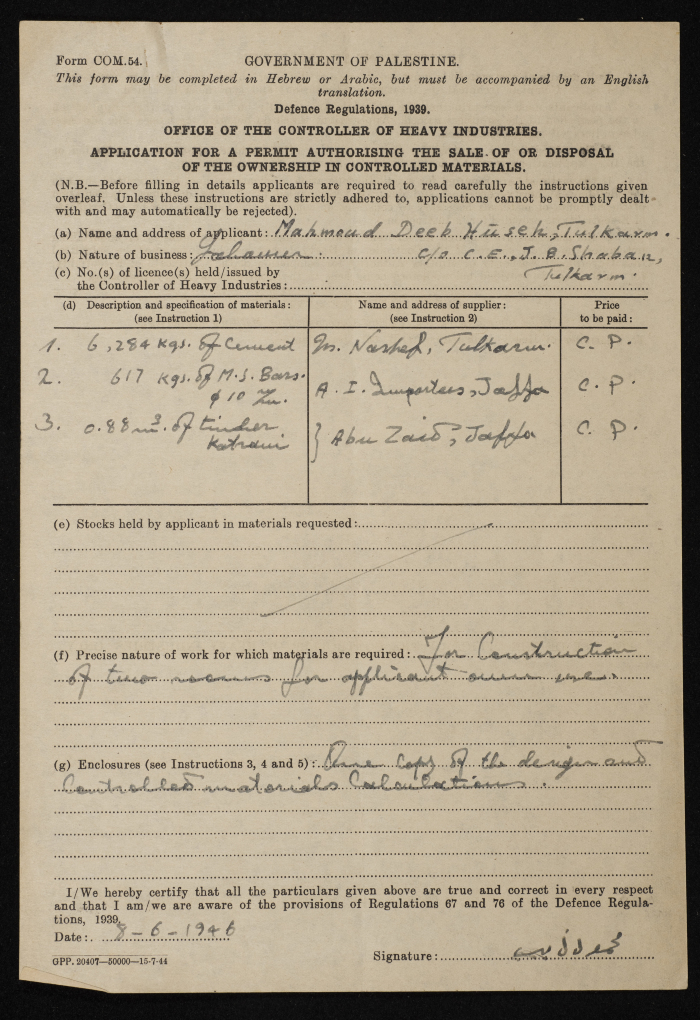 Form COM.54.
GOVERNMENT OF PALESTINE.
This form may be completed in Hebrew or Arabic, but must be accompanied by an English
translation.
Defence Regulations, 1939.
OFFICE OF THE CONTROLLER OF HEAVY INDUSTRIES.
APPLICATION FOR A PERMIT AUTHORISING THE SALE OF OR DISPOSAL
OF THE OWNERSHIP IN CONTROLLED MATERIALS.
(N.B.—Before filling in details applicants are required to read carefully the instructions given
overleaf. Unless these instructions are strictly adhered to, applications cannot be promptly dealt
with and may automatically be rejected).
(a) Name and address of applicant: Mahmoud Deeb Huseh, Tulkarm.
(b) Nature of business: c/o C.E., J.B. Shaban,
(c) No.(s) of licence(s) held/issued by Tulkarm.
the Controller of Heavy Industries:
(d) Description and specification of materials: Name and address of supplier: Price
(see Instruction 1) (see Instruction 2) to be paid:
1. 6,284 kgs. of Cement Nashef, Tulkarm. C. P.
2. 617 kgs. of M.S. Bars. A. I. Importers, Jaffa C. P.
φ 10
3. 0.88 m³. of timber } Abu Zaid, Jaffa C. P.
Katrani
(e) Stocks held by applicant in materials requested:
(f) Precise nature of work for which materials are required: For Construction
of two rooms for applicant own use.
(g) Enclosures (see Instructions 3, 4 and 5): One Copy of the design and
Controlled materials Calculations.
I/We hereby certify that all the particulars given above are true and correct in every respect
and that I am/we are aware of the provisions of Regulations 67 and 76 of the Defence Regula-
tions, 1939.
Date: 8-6-1946
Signature:
GPP. 20407—50000—15-7-44